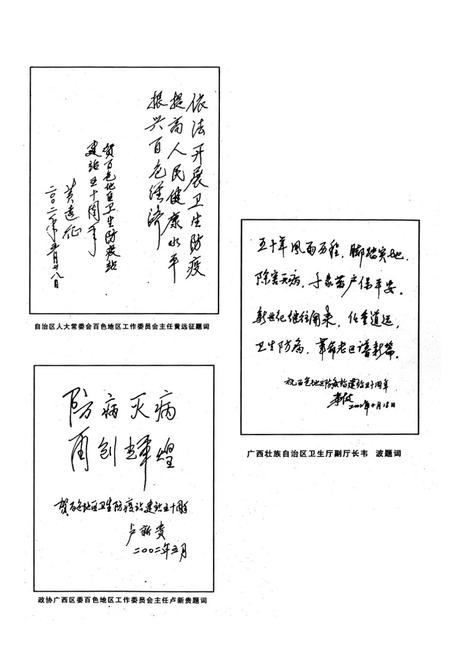 依法开展卫生防疫
提高人民健康水平
振兴百色经济
贺百色地区卫生防疫站
建站五十周年
黄远征
自治区人大常委会百色地区工作委员会主任黄远征题词
防病灭病
再创辉煌
贺百色地区卫生防疫站建站五十周年
卢新贵
二00二年五月
政协广西区委百色地区工作委员会主任卢新贵题词
五十年风雨历程，脚踏实地，
除害灭病，千家万户保平安。
新世纪继往开来，任重道远，
卫生防病，革命老区谱新篇。
祝百色地区防疫站建站五十周年
韦波
广西壮族自治区卫生厅副厅长韦 波题词